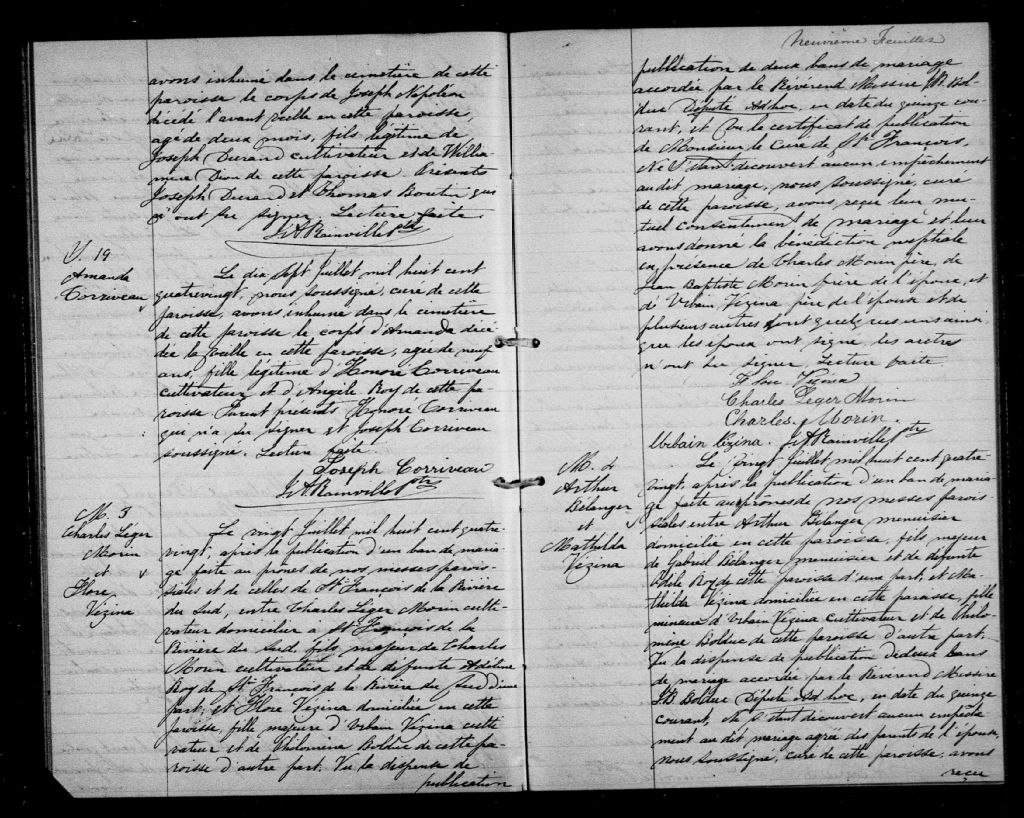 avons inhumé dans le cimetière de cette
paroisse le corps de Joseph Napoléon
décédé l'avant veille en cette paroisse,
agé de deux mois, fils légitime de
Joseph Durand cultivateur et de Willia-
mine Dion de cette paroisse. Présents
Joseph Durand et Thomas Boutin qui
n'ont su signer. Lecture faite.
J.A Rainville ptre
S. 19
Amanda
Corriveau
Le dix sept Juillet mil huit cent
quatrevingt, nous soussigné, curé de cette
paroisse, avons inhumé dans le cimetière
de cette paroisse le corps d'Amanda décé-
dée la veille en cette paroisse, agée de neuf
ans, fille légitime d'Honoré Corriveau
cultivateur et d'Angèle Roy de cette pa-
roisse. Furent présents Honoré Corriveau
qui n'a su signer et Joseph Corriveau
soussigné. Lecture faite.
Joseph Corriveau
J.A Rainville ptre
M. 3
Charles Léger
Morin
et
Flore
Vézina
Le vingt Juillet mil huit cent quatre-
vingt, après la publication d'un ban de maria-
ge faite au prônes de nos messes parois-
siales et de celles de St François de la Rivière
du Sud, entre Charles Léger Morin culti-
vateur domicilier à St François de la
Rivière du Sud, fils majeur de Charles
Morin cultivateur et de défunte Adéline
Roy de St François de la Rivière du Sud d'une
part, et Flore Vézina domiciliée en cette
paroisse, fille majeure d'Urbain Vézina culti-
vateur et de Philomène Bolduc de cette pa-
roisse d'autre part. Vu la dispense de
publication
Neuvième Feuillet
publication de deux bans de mariage
accordée par le Révérend Messire JB. Bol-
duc Député Adhoc, en date du quinze cou-
rant, et Vu le certificat de publication
de Monsieur le Curé de St François,
Ne S'étant découvert aucun empêchement
au dit mariage, nous soussigné, curé
de cette paroisse, avons reçu leur mu-
tuel consentement de mariage et leur
avons donné la bénédiction nuptiale
en présence de Charles Morin père, de
Jean Baptiste Morin frère de l'époux, et
d'Urbain Vézina père de l'épouse et de
plusieurs autres dont quelques uns ainsi
que les époux ont signé, les autres
n'ont su signer. Lecture faite.
Flore Vézina
Charles Léger Morin
Charles. Morin
Urbain Vézina. J.A Rainville ptre
M. 4
Arthur
Bélanger
et
Mathilda
Vézina
Le Vingt Juillet mil huit cent quatre
vingt, après la publication d'un ban de maria-
ge faite au prônes de nos messes parois-
siales entre Arthur Bélanger menuisier
domicilié en cette paroisse, fils majeur
de Gabriel Bélanger menuisier et de défunte
Adèle Roy de cette paroisse d'une part, et Ma-
thilda Vézina domiciliée en cette paroisse, fille
mineure d'Urbain Vézina Cultivateur et de Philo-
mène Bolduc de cette paroisse d'autre part.
Vu la dispense de publication de deux bans
de mariage accordée par le Révérend Messire
J.B Bolduc Député Ad hoc, en date du quinze
courant, ne s'étant découvert aucun empêche-
ment au dit mariage agrée des parents de l'épouse,
nous soussigné, curé de cette paroisse, avons
reçu